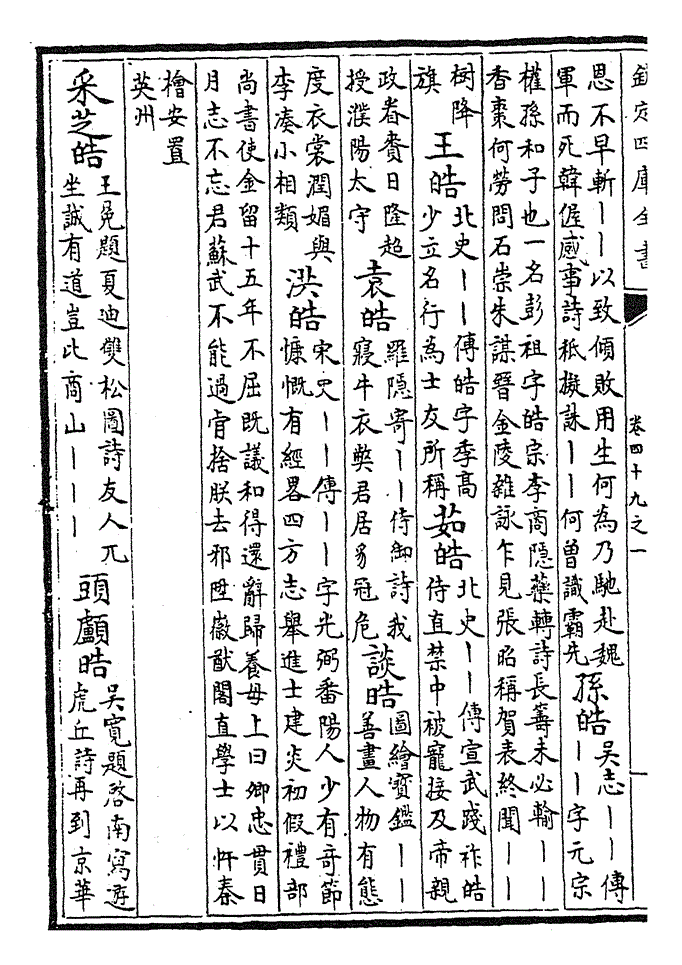 欽定四庫全書
卷四十九之一
一
恩不早斬丨丨以致傾敗用生何為乃馳赴魏
軍而死韓偓感事詩秖擬誅丨丨何曾識霸先
孫皓
吳志丨丨傳
丨丨字元宗
權孫和子也一名彭祖字皓宗李商隱藥轉詩長籌未必輸丨丨
香棗何勞問石崇朱謀晉金陵雜詠乍見張昭稱賀表終聞丨丨
樹降
旗
王皓
北史丨丨傳皓字季高
少立名行為士友所稱
茹皓
北史丨丨傳宣武踐祚皓
侍直禁中被寵接及帝親
政眷賚日隆超
授濮陽太守
袁皓
羅隱寄丨丨侍御詩我
寢牛衣獘君居豸冠危
談皓
圖繪寳鑑丨丨
善畫人物有態
度衣裳潤媚與
李湊小相類
洪皓
宋史丨丨傳丨丨字光弼番陽人少有奇節
慷慨有經畧四方志舉進士建炎初假禮部
尚書使金留十五年不屈既議和得還辭歸養母上曰卿忠貫日
月志不忘君蘇武不能過肯捨朕去邪陞徽猷閣直學士以忤秦
檜安置
英州
采芝皓
王冕題夏迪雙松圖詩友人兀
坐誠有道豈比商山丨丨丨
頭顱皓
吳寛題啓南寫遊
虎丘詩再到京華